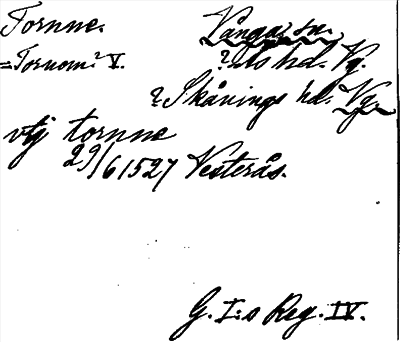 Tornne. Vånga sn.
=Toruom? V. ?Ås hd. Vg.
? Skånings hd. Vg.
vtj tornne
29/6 1527 Vesterås.
G. I:s Reg. IV.